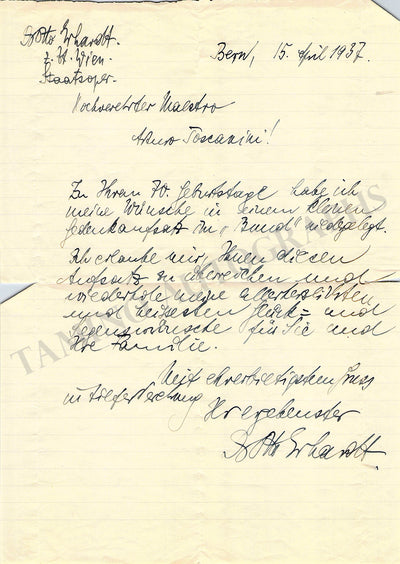 Dr Otto Erhardt.
z. Zt. Wien.
Staatsoper.
Bern, 15. April 1937.
Hochverehrter Maestro
Arturo Toscanini!
Zu Ihrem 70. Geburtstage habe ich
meine Wünsche in einem kleinen
Gedenkaufsatz im „Bund" niedergelegt.
Ich erlaube mir, Ihnen diesen
Aufsatz zu überreichen und
wiederhole meine allerherzlichsten
und heißesten Glück= und
Segenswünsche für Sie und
Ihre Familie.
Mit ehrerbietigstem Gruss
in tiefer Verehrung
Ihr ergebenster
Dr Otto Erhardt.
TAMINO AUTOGRAPHS